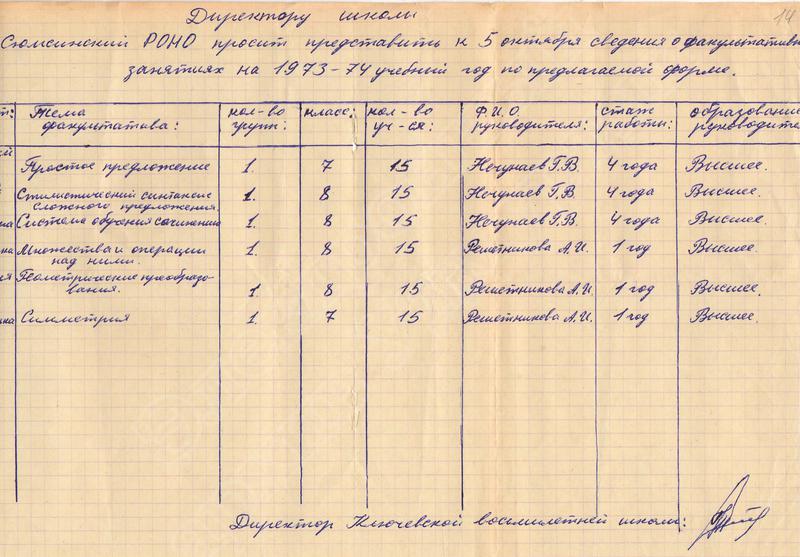 14
Директору школы
Сюмсинский РОНО просит представить к 5 октября сведения о факультативн
занятиях на 1973-74 учебный год по предлагаемой форме.
т: Тема факультатива: кол-во групп: класс: кол-во уч-ся: Ф.И.О. руководителя: стаж работы: образование руководите
Простое предложение 1. 7 15 Нечунаев Г.В. 4 года Высшее.
Стилистический синтаксис сложного предложения. 1. 8 15 Нечунаев Г.В. 4 года Высшее.
Система обучения сочинению 1. 8 15 Нечунаев Г.В. 4 года Высшее.
Множества и операции над ними. 1. 8 15 Решетникова А.И. 1 год Высшее.
Геометрические преобразования. 1. 8 15 Решетникова А.И. 1 год Высшее.
Симметрия 1. 7 15 Решетникова А.И. 1 год Высшее.
Директор Ключевской восьмилетней школы: